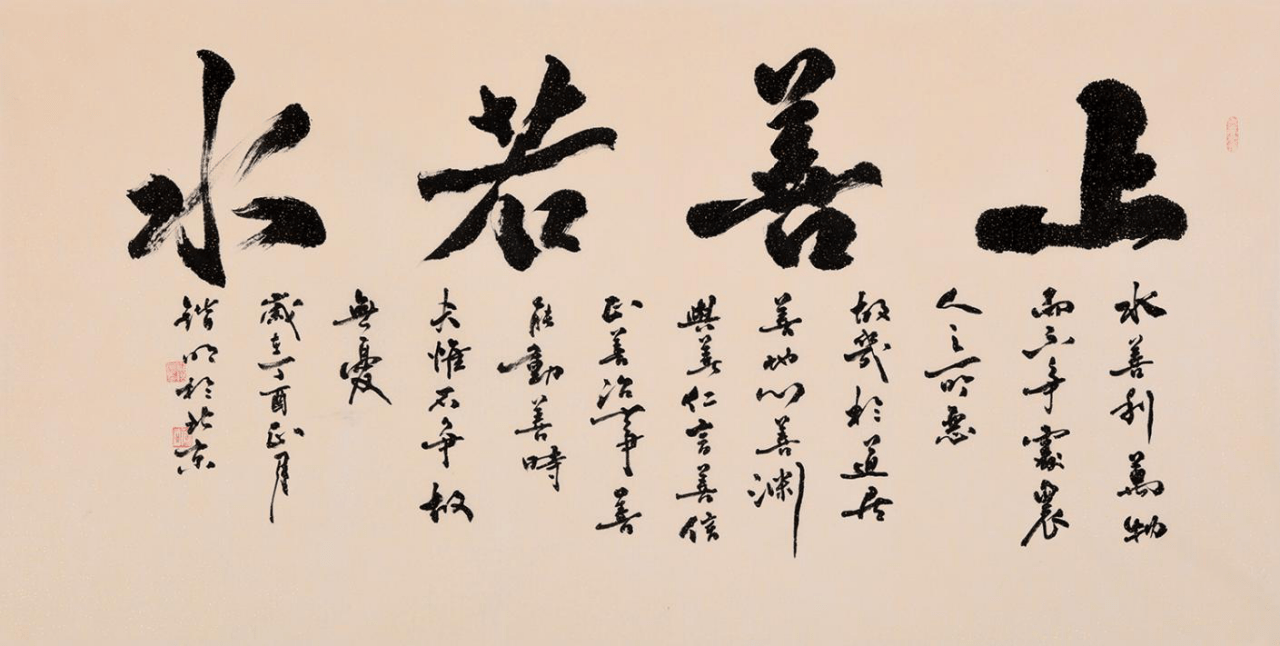 上善若水
水善利萬物
而不争處衆
人之所惡
故幾於道居
善地心善渊
與善仁言善信
正善治事善
能動善時
夫惟不争故
無憂
歲在丁酉正月
鍇明於北京